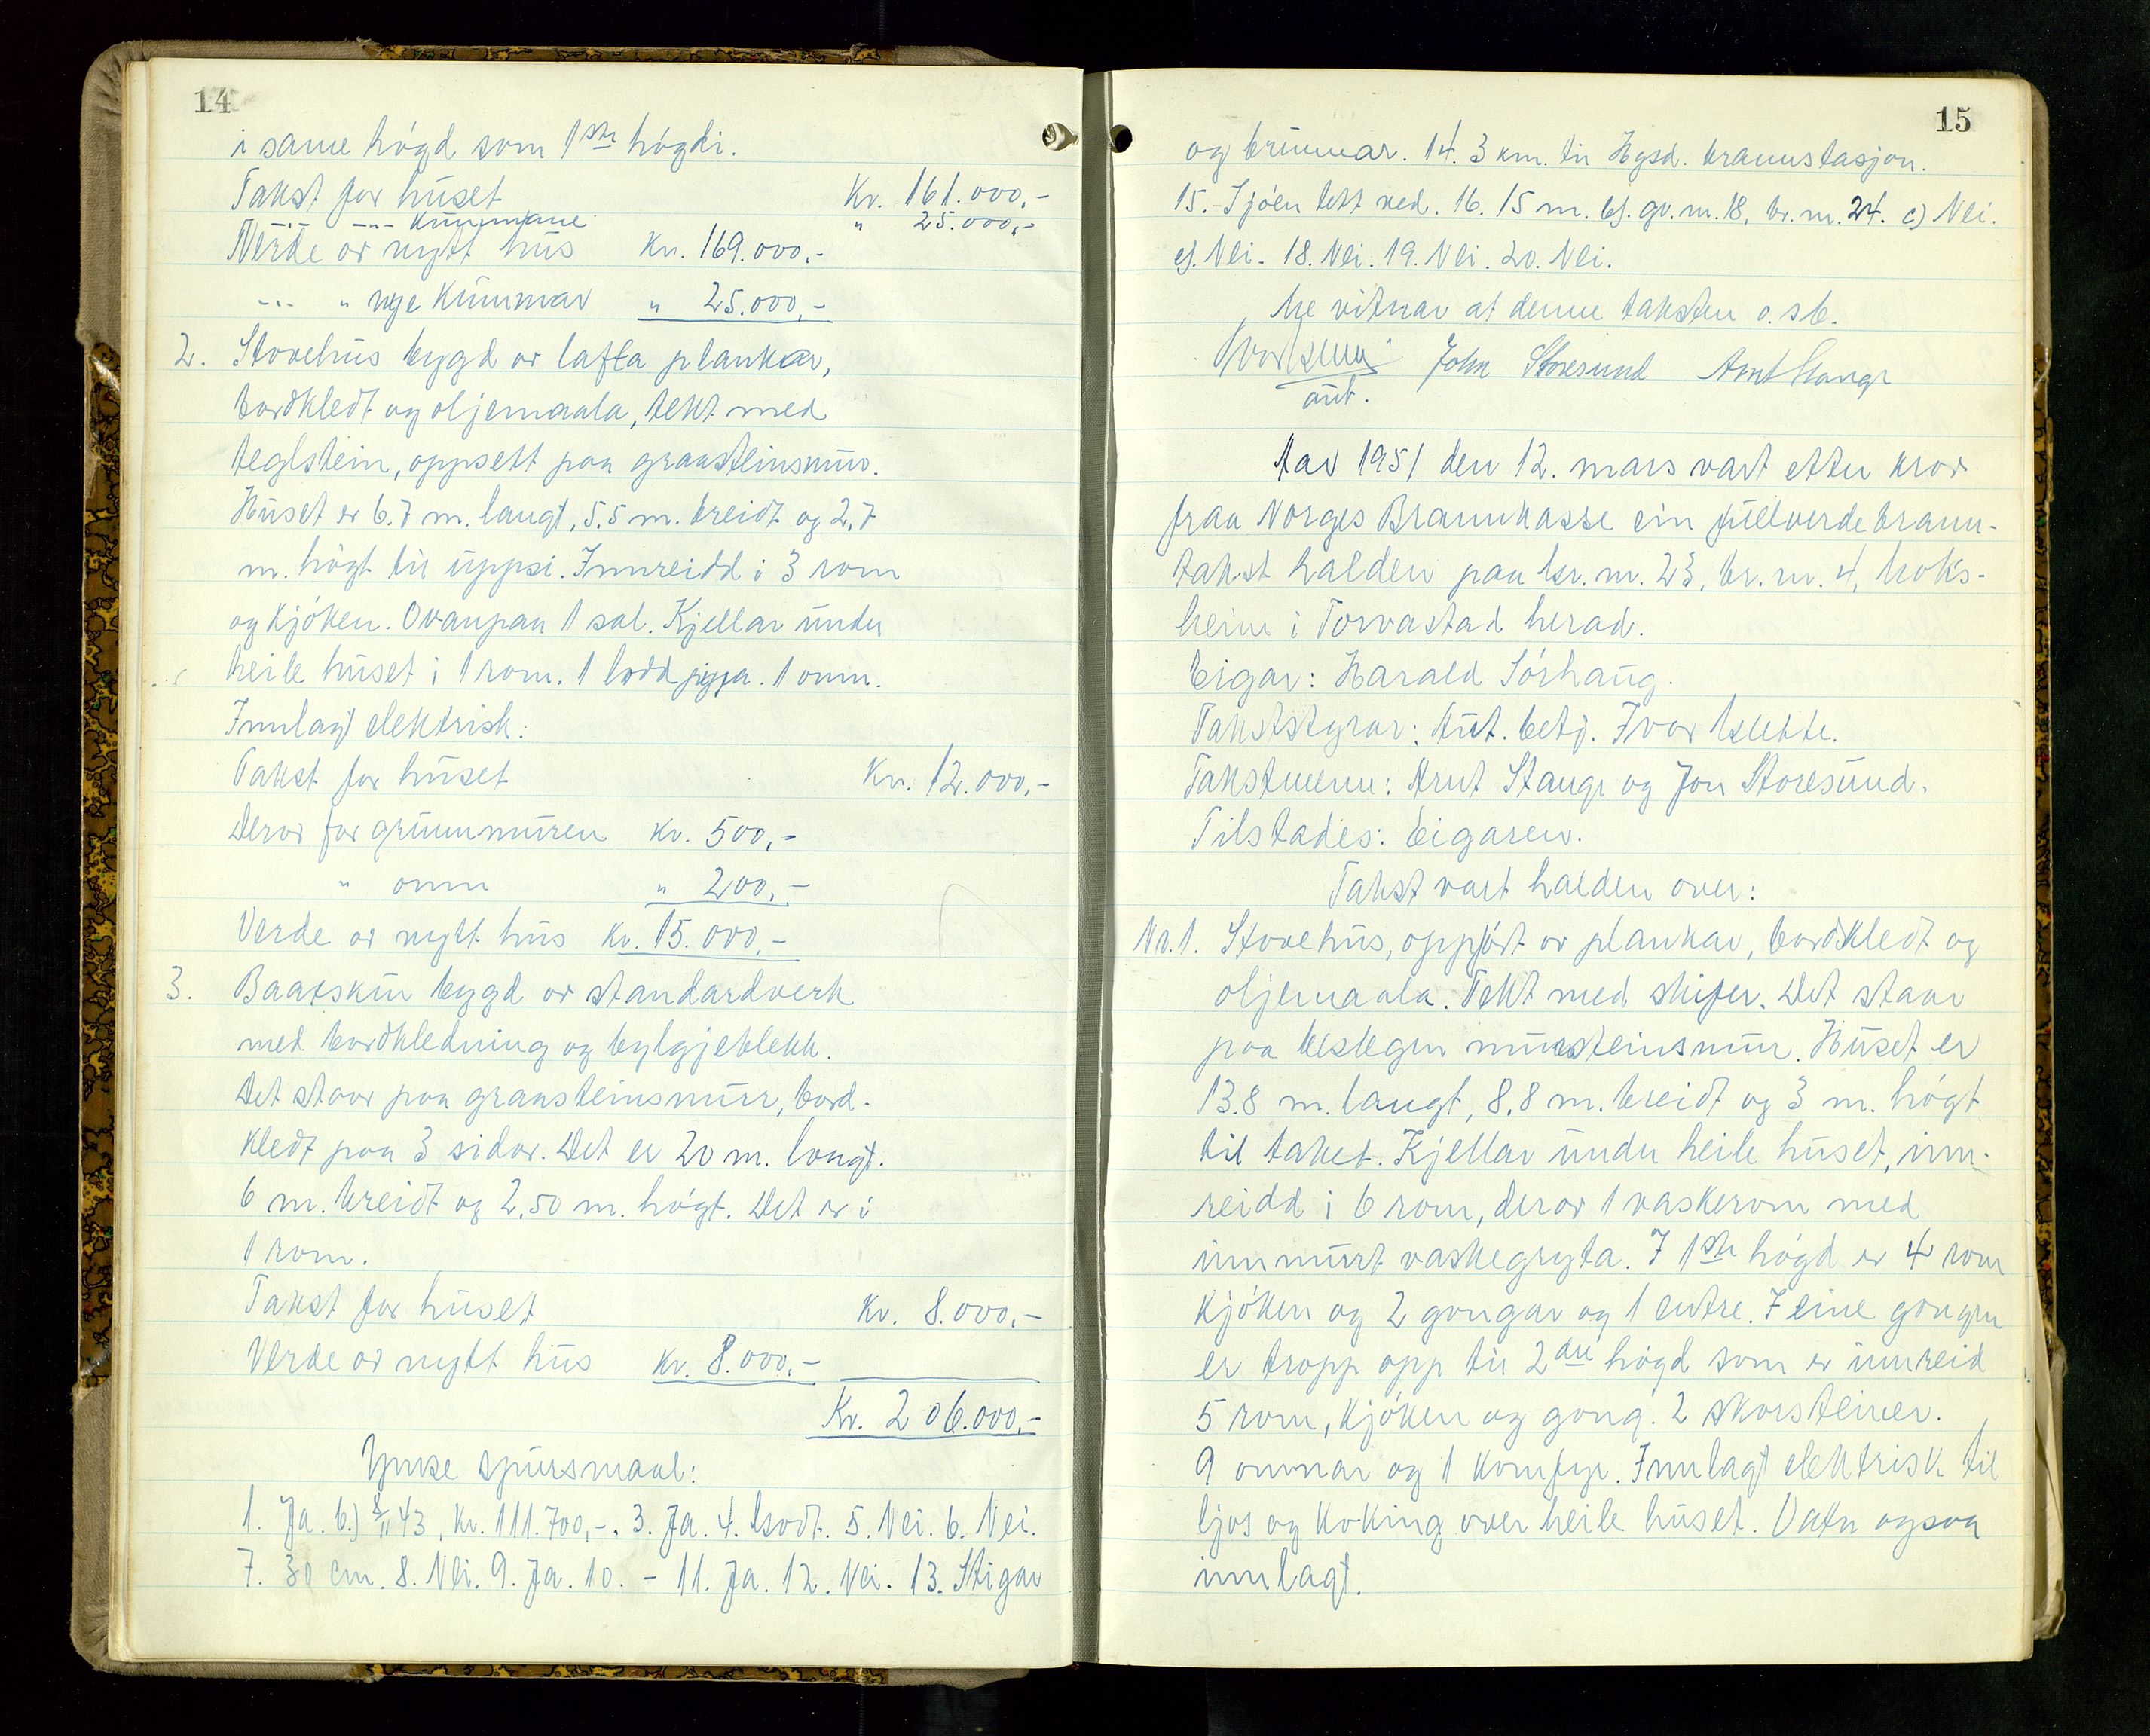 14
i same høgd som 1ste høgdi.
Takst for huset Kr. 161.000,-
-"- -"- kummane " 25.000,-
Verde av nytt hus Kr. 169.000.-
-"- " nye kummar " 25.000,-
2. Stovehus bygd av lafta plankar,
bordkledt og oljemaala, tekt med
teglstein, oppsett paa graasteinsmur.
Huset er 6.7 m. langt, 5.5 m. breidt og 2,7
m. høgt til uppsi. Innreidd i 3 rom
og kjøken. Ovanpaa 1 sal. Kjellar under
heile huset i 1 rom. 1 lodd pipa. 1 omn.
Innlagt elektrisk.
Takst for huset Kr. 12.000,-
Derav for grunnmuren kr. 500,-
" omn " 200,-
Verde av nytt hus Kr. 15.000,-
3. Baatskur bygd av standardverk
med bordkledning og bylgjeblekk.
Det staar paa graasteinsmur, bord-
kledt paa 3 sidor. Det er 20 m. langt.
6 m. breidt og 2,50 m. høgt. Det er i
1 rom.
Takst for huset Kr. 8.000,-
Verde av nytt hus Kr. 8.000,-
Kr. 206.000,-
Ymse spursmaal:
1. Ja. b.) 8/11 43, Kr. 111.700,-. 3. Ja. 4. Godt. 5. Nei. 6. Nei.
7. 30 cm. 8. Nei. 9. Ja. 10. - 11. Ja. 12. Nei. 13. Stigar
15
og brunnar. 14. 3 km. til Hgsd. brannstasjon.
15. Sjøen tett ved. 16. 15 m. b). gr. nr. 18, br. nr. 24. c) Nei.
e). Nei. 18. Nei. 19. Nei. 20. Nei.
Me vitnar at denne taksten o. sb.
Ivar John Storesund Arnt Stange
aut.
Aar 1951 den 12. mars vart etter krav
fraa Norges Brannkasse ein fullverdebrann-
takst halden paa gr. nr. 23, br. nr. 4,
heim i Torvastad herad.
Eigar: Harald Sørhaug.
Takststyrar: Aut. betj. Ivar
Takstmenn: Arnt Stange og Jon Storesund.
Tilstades: Eigaren.
Takst vart halden over:
Nr. 1. Stovehus, oppført av plankar, bordkledt og
oljemaala. Tekt med skifer. Det staar
paa murasteinsmur. Huset er
13.8 m. langt, 8,8 m. breidt og 3 m. høgt
til taket. Kjellar under heile huset, inn-
reidd i 6 rom, derav 1 vaskerom med
innmurt vaskegryta. I 1ste høgd er 4 rom
kjøken og 2 gongar og 1 entre. I eine gongen
er tropp opp til 2dre høgd som er innreid
5 rom, kjøken og gong. 2 skorsteiner.
9 omnar og 1 komfyr. Innlagt elektrisk til
ljos og koking over heile huset. Vatn ogsaa
innlagt.